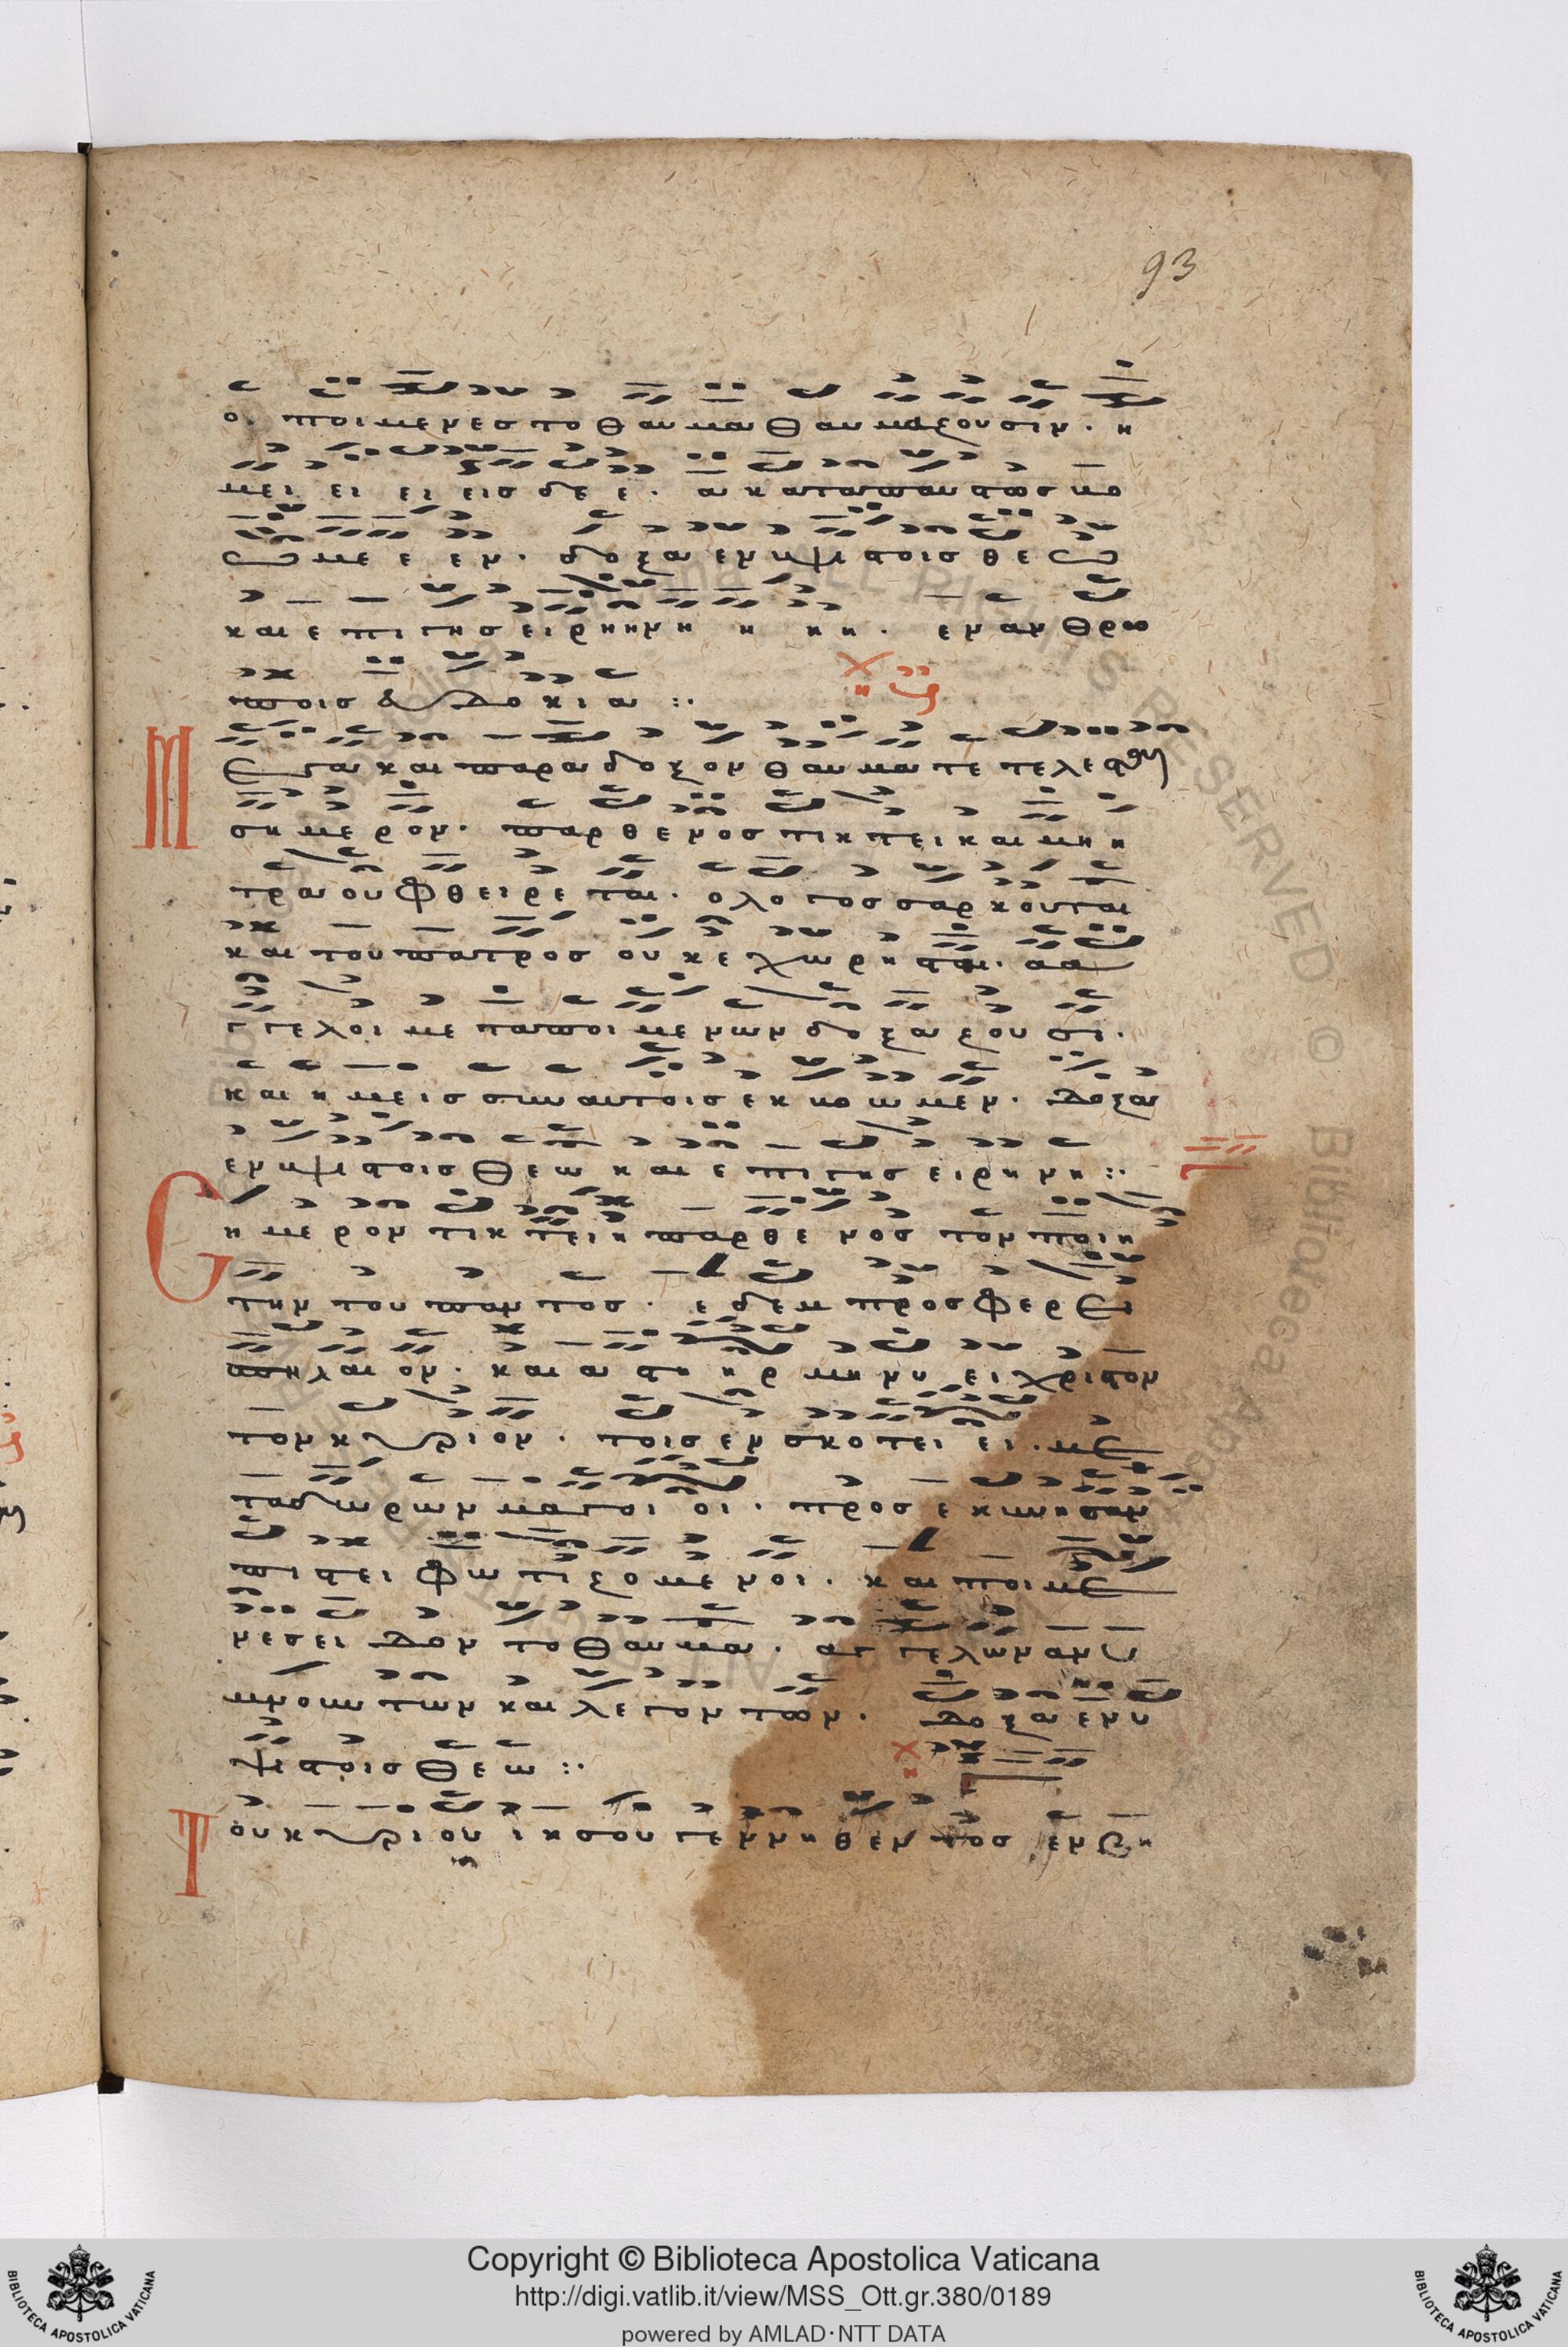 93
ο. ποιμενεσ το θαυμα θαυμαζουσιν. η
μει ει ει εισ δε ε. α καταπαυστωσ βο
ω με ε εν. δοξα εν υψιστοισ θεω
και επι γησ ειρηηνη η ηη. εν ανθρω
ποισ ευδοκια :.
Μεγα και παραδοξον θαυμα τετελεσται
σημερον. παρθενοσ τικτει και μη η
τρα ου φθειρεται. ο λογοσ σαρκουται
και του πατροσ ου κεχωρισται. αα
γγελοι μετα ποιμενων δοξαζουσι.
και ημεισ συν αυτοισ εκβοωμεν. Δοξα
εν υψιστοισ θεω και επι γησ ειρηνη :.
Cημερον τικτει η παρθενοσ τον ποιη
την του παντοσ. εδεμ προσφερει
σπηλαιον. και αστη ηρ μηνυει χριστον
τον κυριον. τοισ εν σκοτει ει. με
τα δωρων μαγοι οι. προσεκυνησαν
πιστει φωτιζομενοι. και ποιμε
νεσ ειδον το θαυμα. αγγελων ανυ
μνουντων και λεγοντων. Δοξα εν υ
ψιστοισ θεω :.
Του κυριου ιησου γεννηθεντοσ εν βη
Copyright © Biblioteca Apostolica Vaticana
http://digi.vatlib.it/view/MSS_Ott.gr.380/0189
powered by AMLAD·NTT DATA